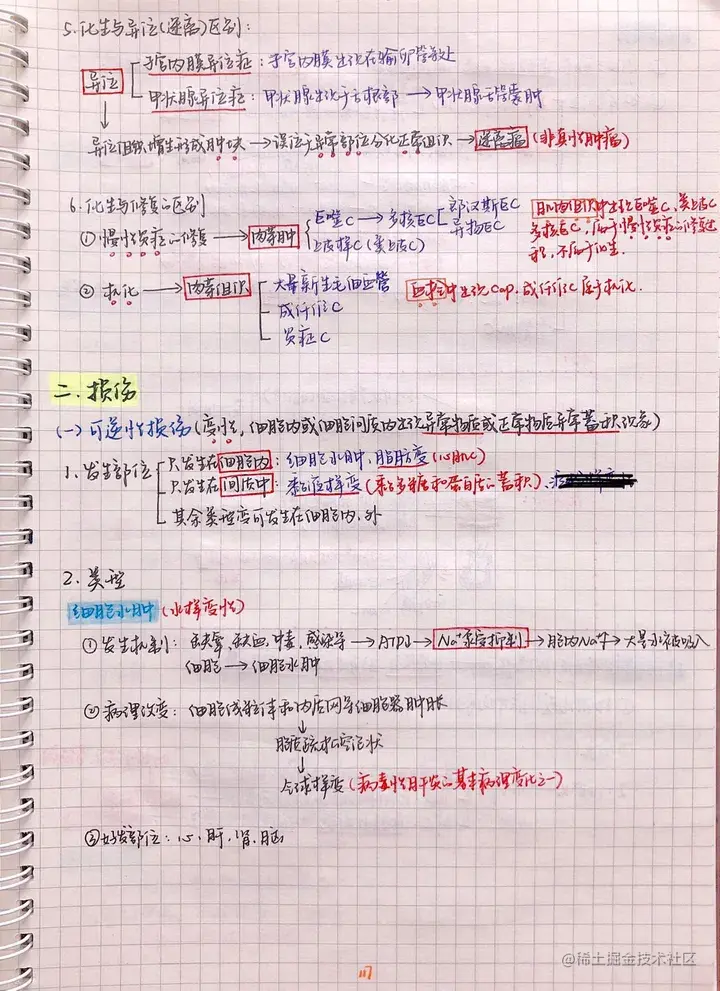 5.化生与异位(迷离)区别:
异位 子宫内膜异位症:子宫内膜出现在输卵管等处
甲状腺异位症:甲状腺出现于舌根部→甲状腺舌管囊肿
↓
异位组织增生形成肿块→误位于异常部位分化正常组织→迷离瘤(非真性肿瘤)
6.化生与修复的区别
①慢性炎症的修复→肉芽肿 巨噬C→多核EC 郎汉斯EC 异物EC
上皮样C(类上皮C)
肌肉组织中出现巨噬C、类上皮C
多核EC,属于慢性炎症的修复过
程,不属于化生.
②机化→肉芽组织 大量新生毛细血管
成纤维C
炎症C
血栓中出现Cap,成纤维C属于机化.
二.损伤
(一)可逆性损伤(变性,细胞内或细胞间质内出现异常物质或正常物质异常蓄积现象)
1.发生部位 只发生在细胞内:细胞水肿,脂肪变(心肌C)
只发生在间质中:黏液样变(黏多糖和蛋白质的蓄积)、
其余类型变可发生在细胞内、外
2.类型
细胞水肿(水样变性)
①发生机制:缺氧、缺血、中毒、感染等→ATP↓→Na⁺泵受抑制→胞内Na⁺↑→大量水被吸入
细胞→细胞水肿
②病理改变:细胞线粒体和内质网等细胞器肿胀
↓
胞质疏松空泡状
↓
气球样变(病毒性肝炎的基本病理变化之一)
③好发部位:心、肝、肾、脑
117
@稀土掘金技术社区